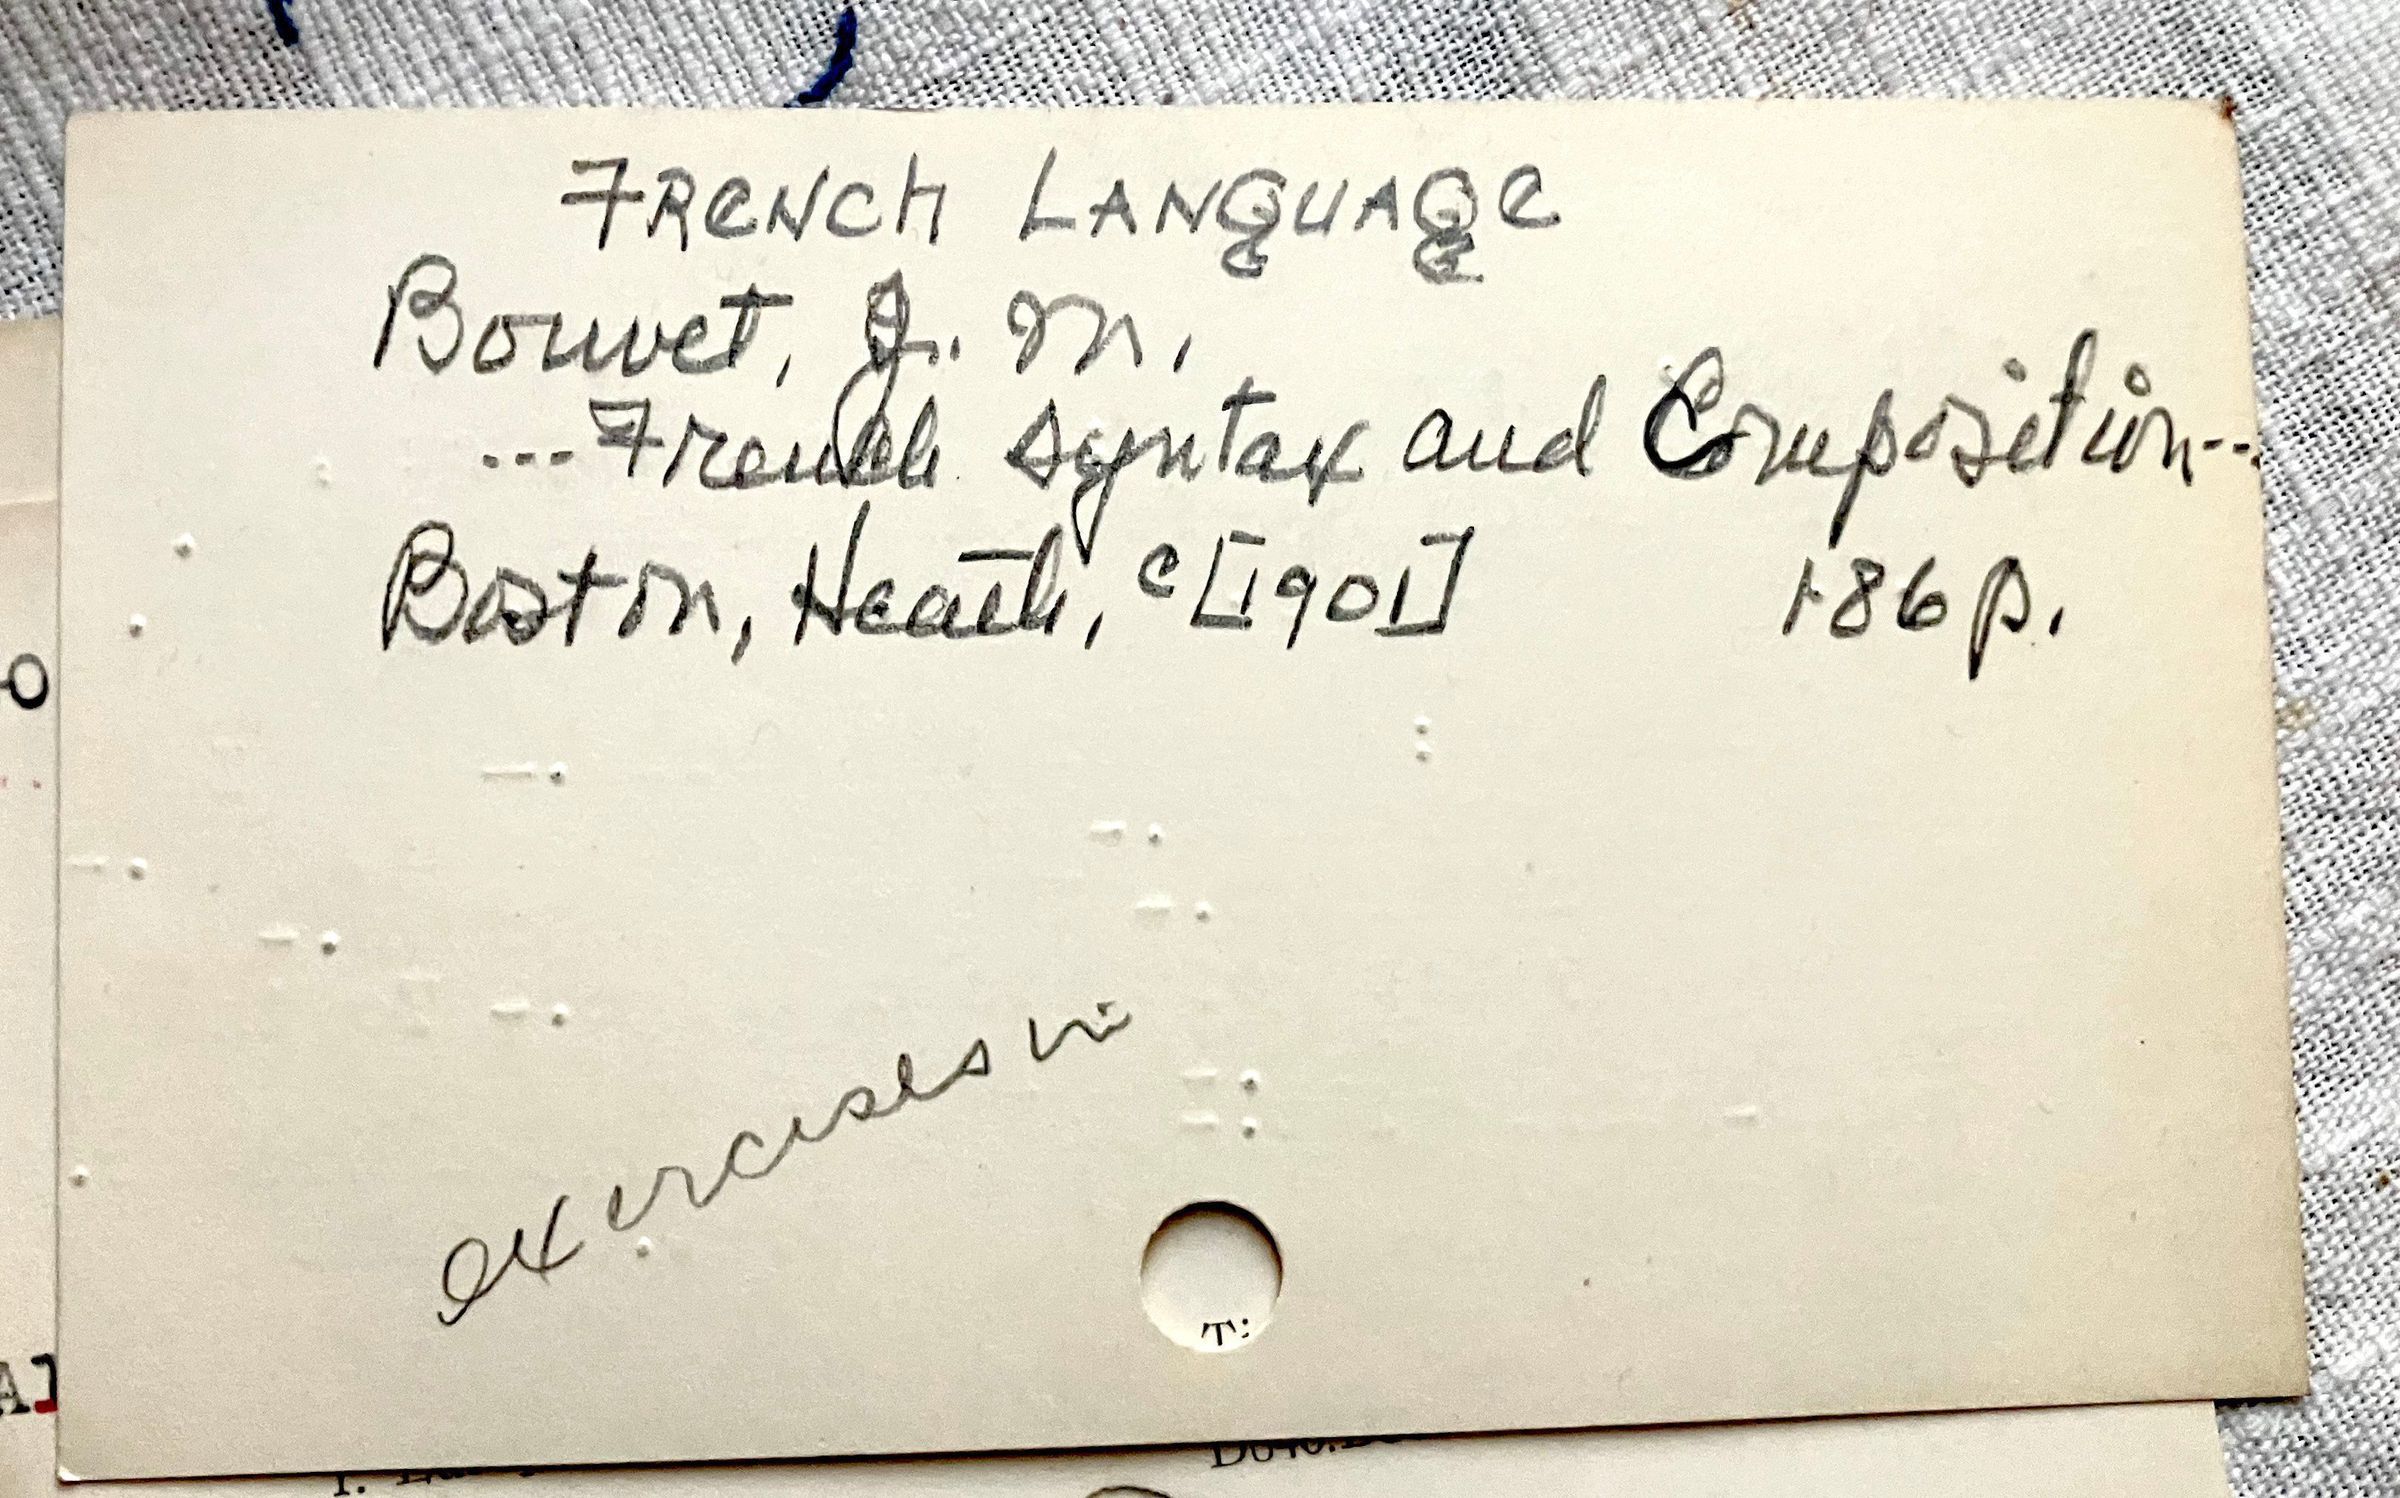 FRENCH LANGUAGE
Bouvet, J. M.
... French Syntax and Composition...
Boston, Heath, c[1901] 186 p.
exercises in
T:
o
Al